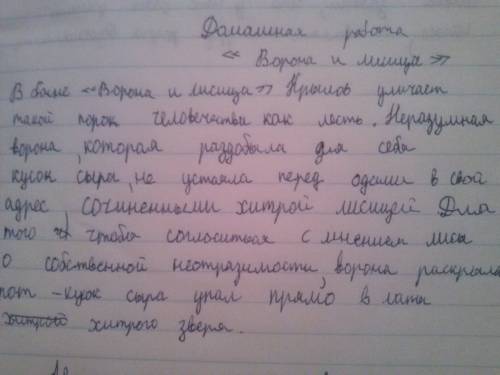 Домашняя работа
« Ворона и лисица »
В басне «Ворона и лисица» Крылов уличает
такой порок человечества как лесть. Неразумная
ворона, которая раздобыла для себя
кусок сыра, не устояла перед одами в свой
адрес, сочиненными хитрой лисицей Для
того чтобы согласиться с мнением лисы
о собственной неотразимости, ворона раскрыла
рот - кусок сыра упал прямо в лапы
хитрого хитрого зверя.